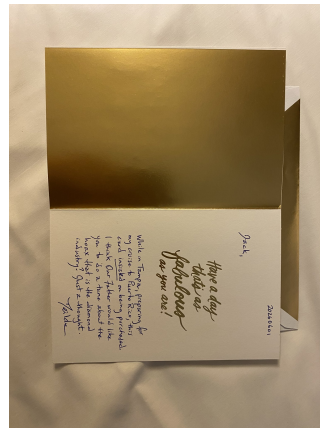 20260601
Jack,
Have a day
that's as
fabulous
as you are!
While in Tampa preparing for
my cruise to Puerto Rico, this
card insisted on being purchased.
I think Our Father would like
you to do a turn about the
hoax that is the diamond
industry? Just a thought.